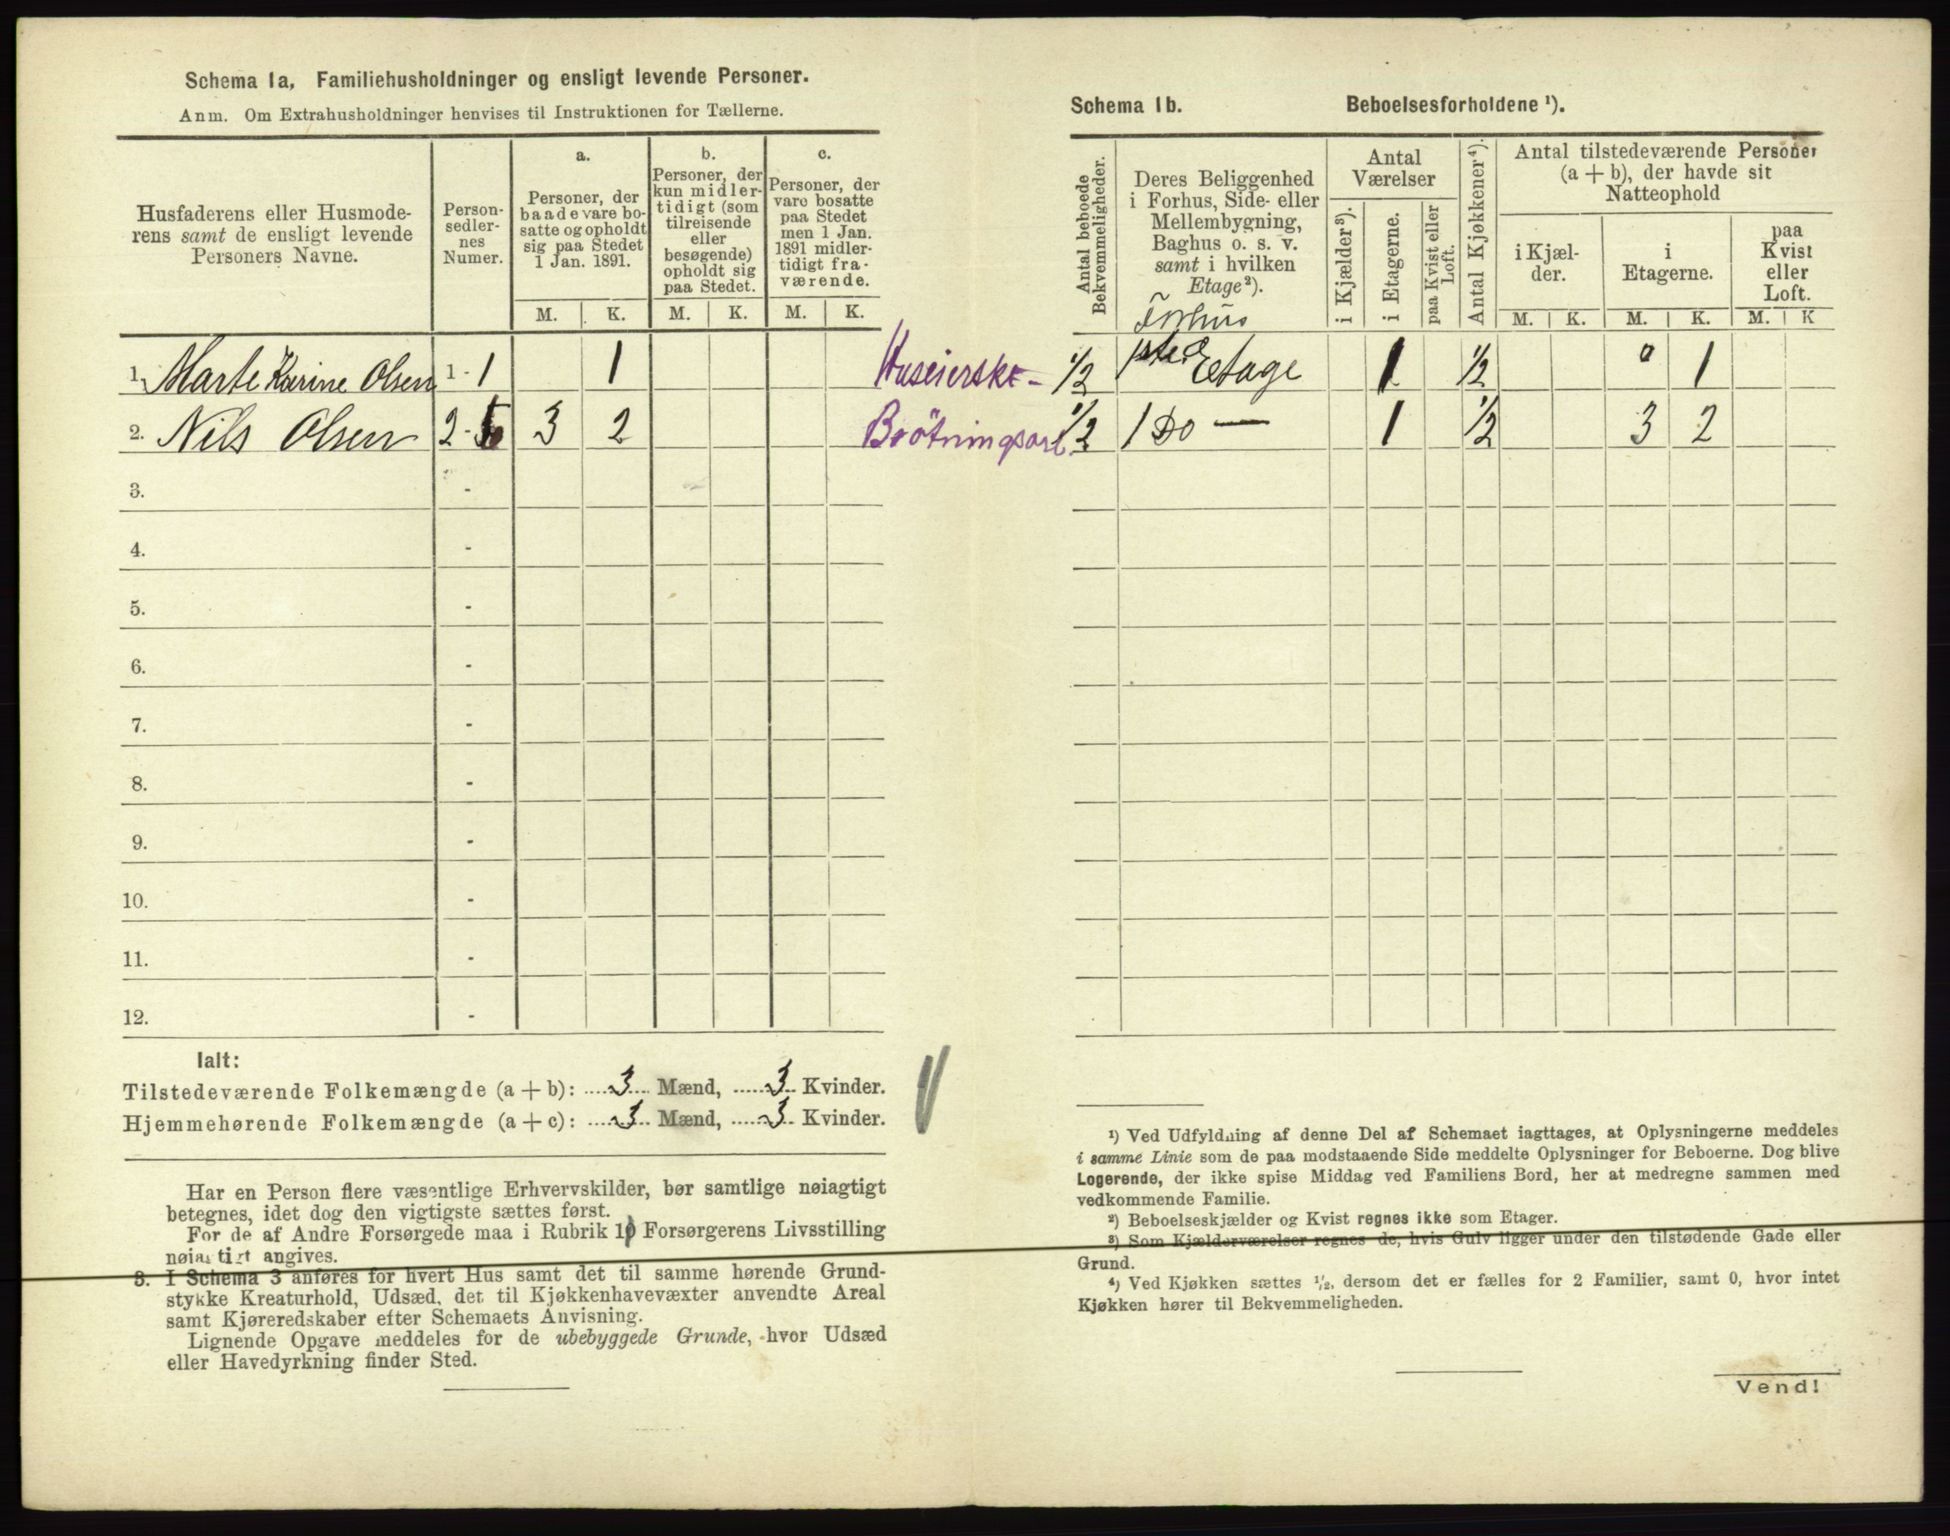 Schema 1a, Familiehusholdninger og ensligt levende Personer.
Anm. Om Extrahusholdninger henvises til Instruktionen for Tællerne.
Husfaderens eller Husmode-
rens samt de ensligt levende
Personers Navne.
Person-
sedler-
nes
Numer.
a.
Personer, der
baade vare bo-
satte og opholdt
sig paa Stedet
1 Jan. 1891.
b.
Personer, der
kun midler-
tidigt (som
tilreisende
eller
besøgende)
opholdt sig
paa Stedet.
c.
Personer, der
vare bosatte
paa Stedet
men 1 Jan.
1891 midler-
tidigt fra-
værende.
M. K. M. K. M. K.
1. Marte Karine Olsen 1 - 1 1 Huseierske -
2. Nils Olsen 2 - 3 2 Brötningsarb.
3. -
4. -
5. -
6. -
7. -
8. -
9. -
10. -
11. -
12. -
Ialt:
Tilstedeværende Folkemængde (a + b): 3 Mænd, 3 Kvinder.
Hjemmehørende Folkemængde (a + c): 3 Mænd, 3 Kvinder.
Har en Person flere væsentlige Erhvervskilder, bør samtlige nøiagtigt
betegnes, idet dog den vigtigste sættes først.
For de af Andre Forsørgede maa i Rubrik 10 Forsørgerens Livsstilling
nøiagtigt angives.
3. I Schema 3 anføres for hvert Hus samt det til samme hørende Grund-
stykke Kreaturhold, Udsæd, det til Kjøkkenhavevæxter anvendte Areal
samt Kjøreredskaber efter Schemaets Anvisning.
Lignende Opgave meddeles for de ubebyggede Grunde, hvor Udsæd
eller Havedyrkning finder Sted.
Schema 1b. Beboelsesforholdene ¹).
Antal beboede
Bekvemmeligheder.
Deres Beliggenhed
i Forhus, Side- eller
Mellembygning,
Baghus o. s. v.
samt i hvilken
Etage²).
Antal
Værelser
i Kjælder³).
i Etagerne.
paa Kvist eller
Loft.
Antal Kjøkkener⁴).
Antal tilstedeværende Personer
(a + b), der havde sit
Natteophold
i Kjæl-
der.
i
Etagerne.
paa
Kvist
eller
Loft.
M. K. M. K. M. K
Forhus
1/2 1ste Etage 1 1/2 0 1
1/2 1 Do — 1 1/2 3 2
¹) Ved Udfyldning af denne Del af Schemaet iagttages, at Oplysningerne meddeles
i samme Linie som de paa modstaaende Side meddelte Oplysninger for Beboerne. Dog blive
Logerende, der ikke spise Middag ved Familiens Bord, her at medregne sammen med
vedkommende Familie.
²) Beboelseskjælder og Kvist regnes ikke som Etager.
³) Som Kjælderværelser regnes de, hvis Gulv ligger under den tilstødende Gade eller
Grund.
⁴) Ved Kjøkken sættes ½, dersom det er fælles for 2 Familier, samt 0, hvor intet
Kjøkken hører til Bekvemmeligheden.
Vend!